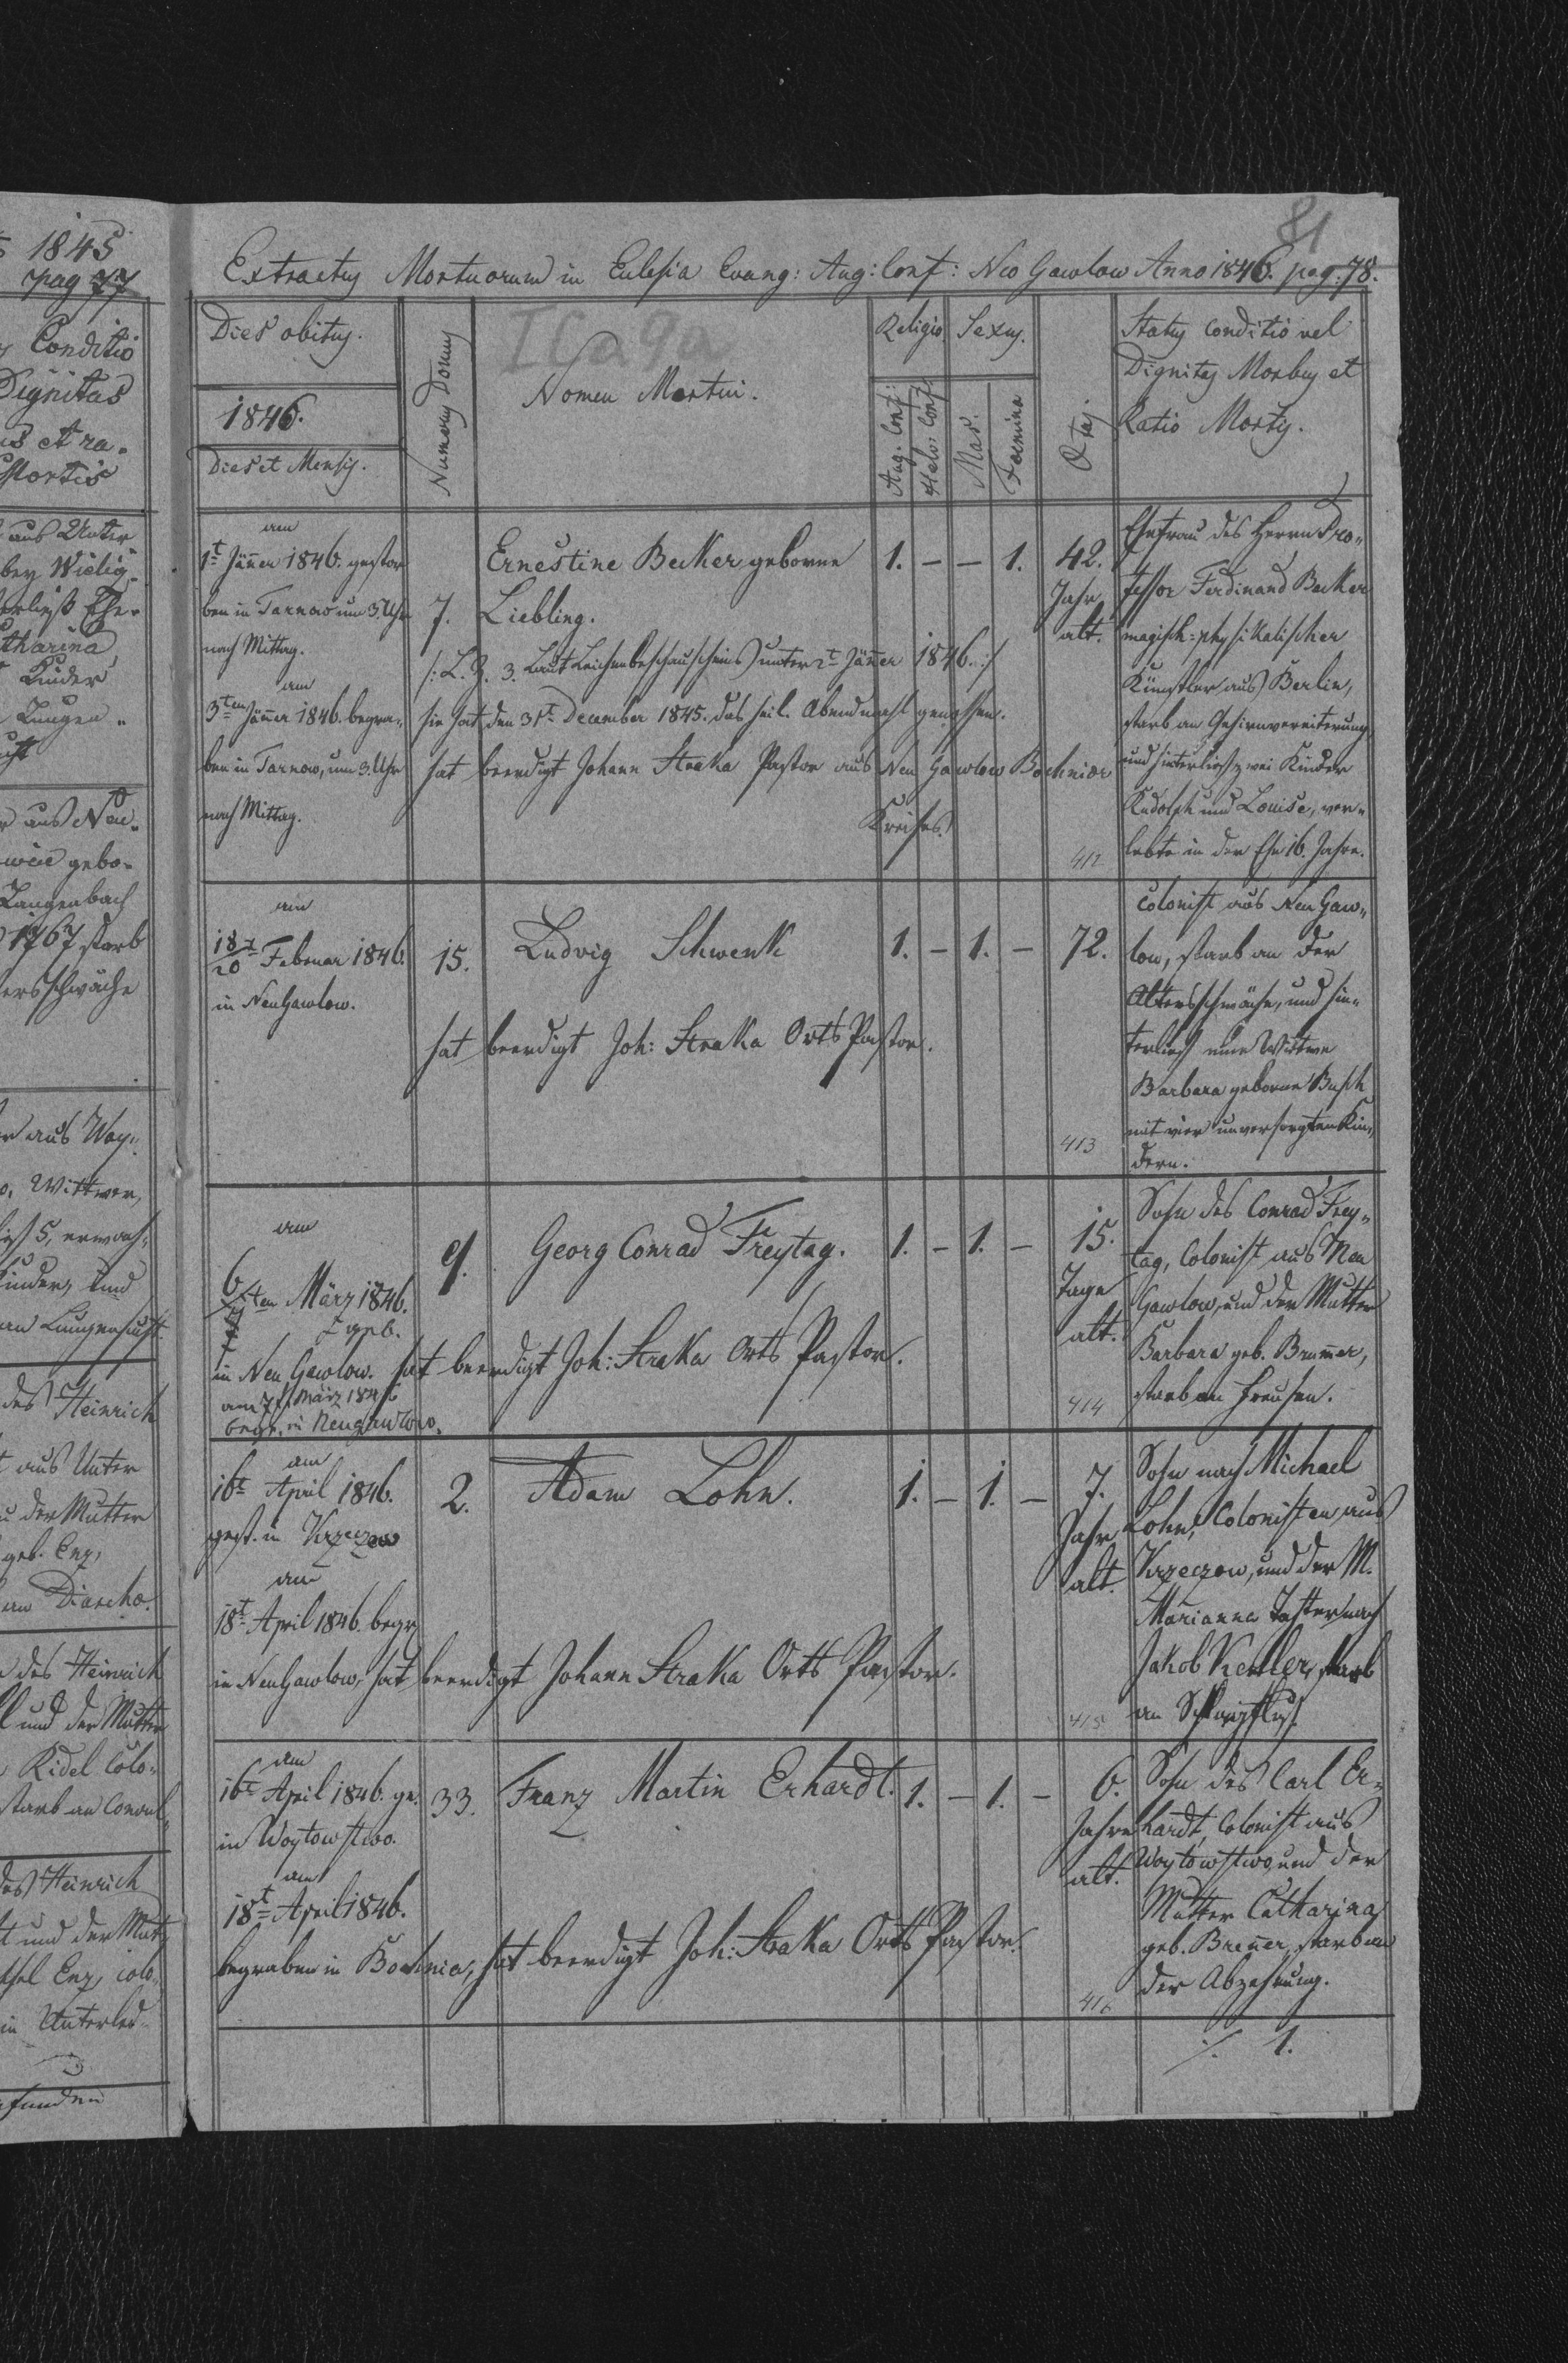 1845
pag 77
Conditio
Dignitas
is et ra-
Mortis
aus Unter
bey Wielig
erließ Ehe-
tharina
Kinder
Lungen-
aus Neu-
gebo-
Langenbach
1767 starb
ersschwäche
r aus Woy-
o, Wittwer,
5, erwach-
Kinder, und
an Lungensucht
des Heinrich
t aus Unter
u der Mutter
geb. Enz,
an Diareho.
des Heinrich
l und der Mutter
Ridel Colo-
starb an Convul-
des Heinrich
t und der Mut-
thel Enz, colo-
in Unterled-
funden
81
Extractus Mortuorum in Eclesia Evang: Aug: Conf: Neo Gawlow Anno 1846. pag. 78.
I Ca 9a
Dies obitus.
1846.
Dies et Mensis.
Numerus Domus
Nomen Mortui.
Religio
Aug. Conf
Helv: Conf
Sexus.
Mas.
Foemina
Ætas
Status conditio vel
Dignitas Morbus et
Ratio Mortis.
am
1t Jäner 1846. gestor
ben in Tarnow um 3 Uhr
nach Mittag.
am
3ten Jäner 1846. begra-
ben in Tarnow, um 3 Uhr
nach Mittag.
7.
Ernestine Becker geborne
Liebling.
/: L. Z. 3. Laut Leichenbeschauscheins unter 2t Jäner 1846. :/
sie hat den 31t December 1845. das heil. Abendmahl genossen.
hat beerdigt Johann Straka Pastor aus Neu Gawlow Bochnier
Kreises.
1. – – 1.
42.
Jahr
alt.
412
Ehefrau des Herrn Pro-
fessor Ferdinand Becker
magisch-physikalischer
Künstler aus Berlin,
starb an Gehirnvereiterung
und hinterließ zwei Kinder
Rudolph und Louise, ver-
lebte in der Ehe 16. Jahre.
am
18t/20 Februar 1846.
in Neu Gawlow.
15.
Ludvig Schwenk
hat beerdigt Joh: Straka Orts Pastor.
1. – 1. –
72.
413
Colonist aus Neu Gaw-
low, starb an der
Altersschwäche, und hin-
terließ eine Wittwe
Barbara geborne Busch
mit vier unversorgten Kin-
dern.
am
6/7ten März 1846.
geb.
in Neu Gawlow. hat beerdigt Joh: Straka Orts Pastor.
am 7t März 1846
begr. in Neugawlow.
9.
Georg Conrad Freytag.
1. – 1. –
15.
Tage
alt.
414
Sohn des Conrad Frey-
tag, Colonist aus Neu
Gawlow, und der Mutter
Barbara geb. Brumer,
starb an Freusen.
am
16t April 1846.
gest. in Krzeczow
am
18t April 1846. begr
in Neu Gawlow, hat beerdigt Johann Straka Orts Pastor.
2.
Adam Lohn.
1. – 1. –
7.
Jahr
alt.
415
Sohn nach Michael
Lohn, Colonisten aus
Krzeczow, und der M.
Marianna Tochter nach
Jakob Keller, starb
an Schlagfluß.
am
16t April 1846. ge.
in Woytowstwo.
am
18t April 1846.
begraben in Bochnia, hat beerdigt Joh: Straka Orts Pastor.
33.
Franz Martin Erhardt.
1. – 1. –
6.
Jahre
alt.
416
Sohn des Carl Er-
hardt, Colonist aus
Woytowstwo, und der
Mutter Catharina
geb. Brener, starb an
der Abzehrung.
./. 1.